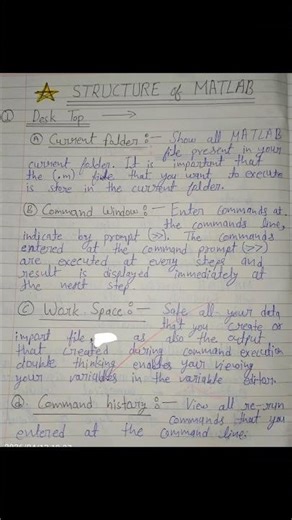 STRUCTURE of MATLAB
① Desk Top :—
Ⓐ Current folder :— Show all MATLAB
file present in your
current folder. It is important that
the (.m) file that you want to execute
is store in the current folder.
Ⓑ Command Window :— Enter commands at
the commands line,
indicate by prompt (>>). The commands
entered at the command prompt (>>)
are executed at every steps and
result is displayed immediately at
the next step
Ⓒ Work Space :— Safe all your data
that you create or
import file as also the output
that created during command execution
double thinking enables your viewing
your variables in the variable editor.
ⓓ Command history :— View all re-run
commands that you
entered at the command line.